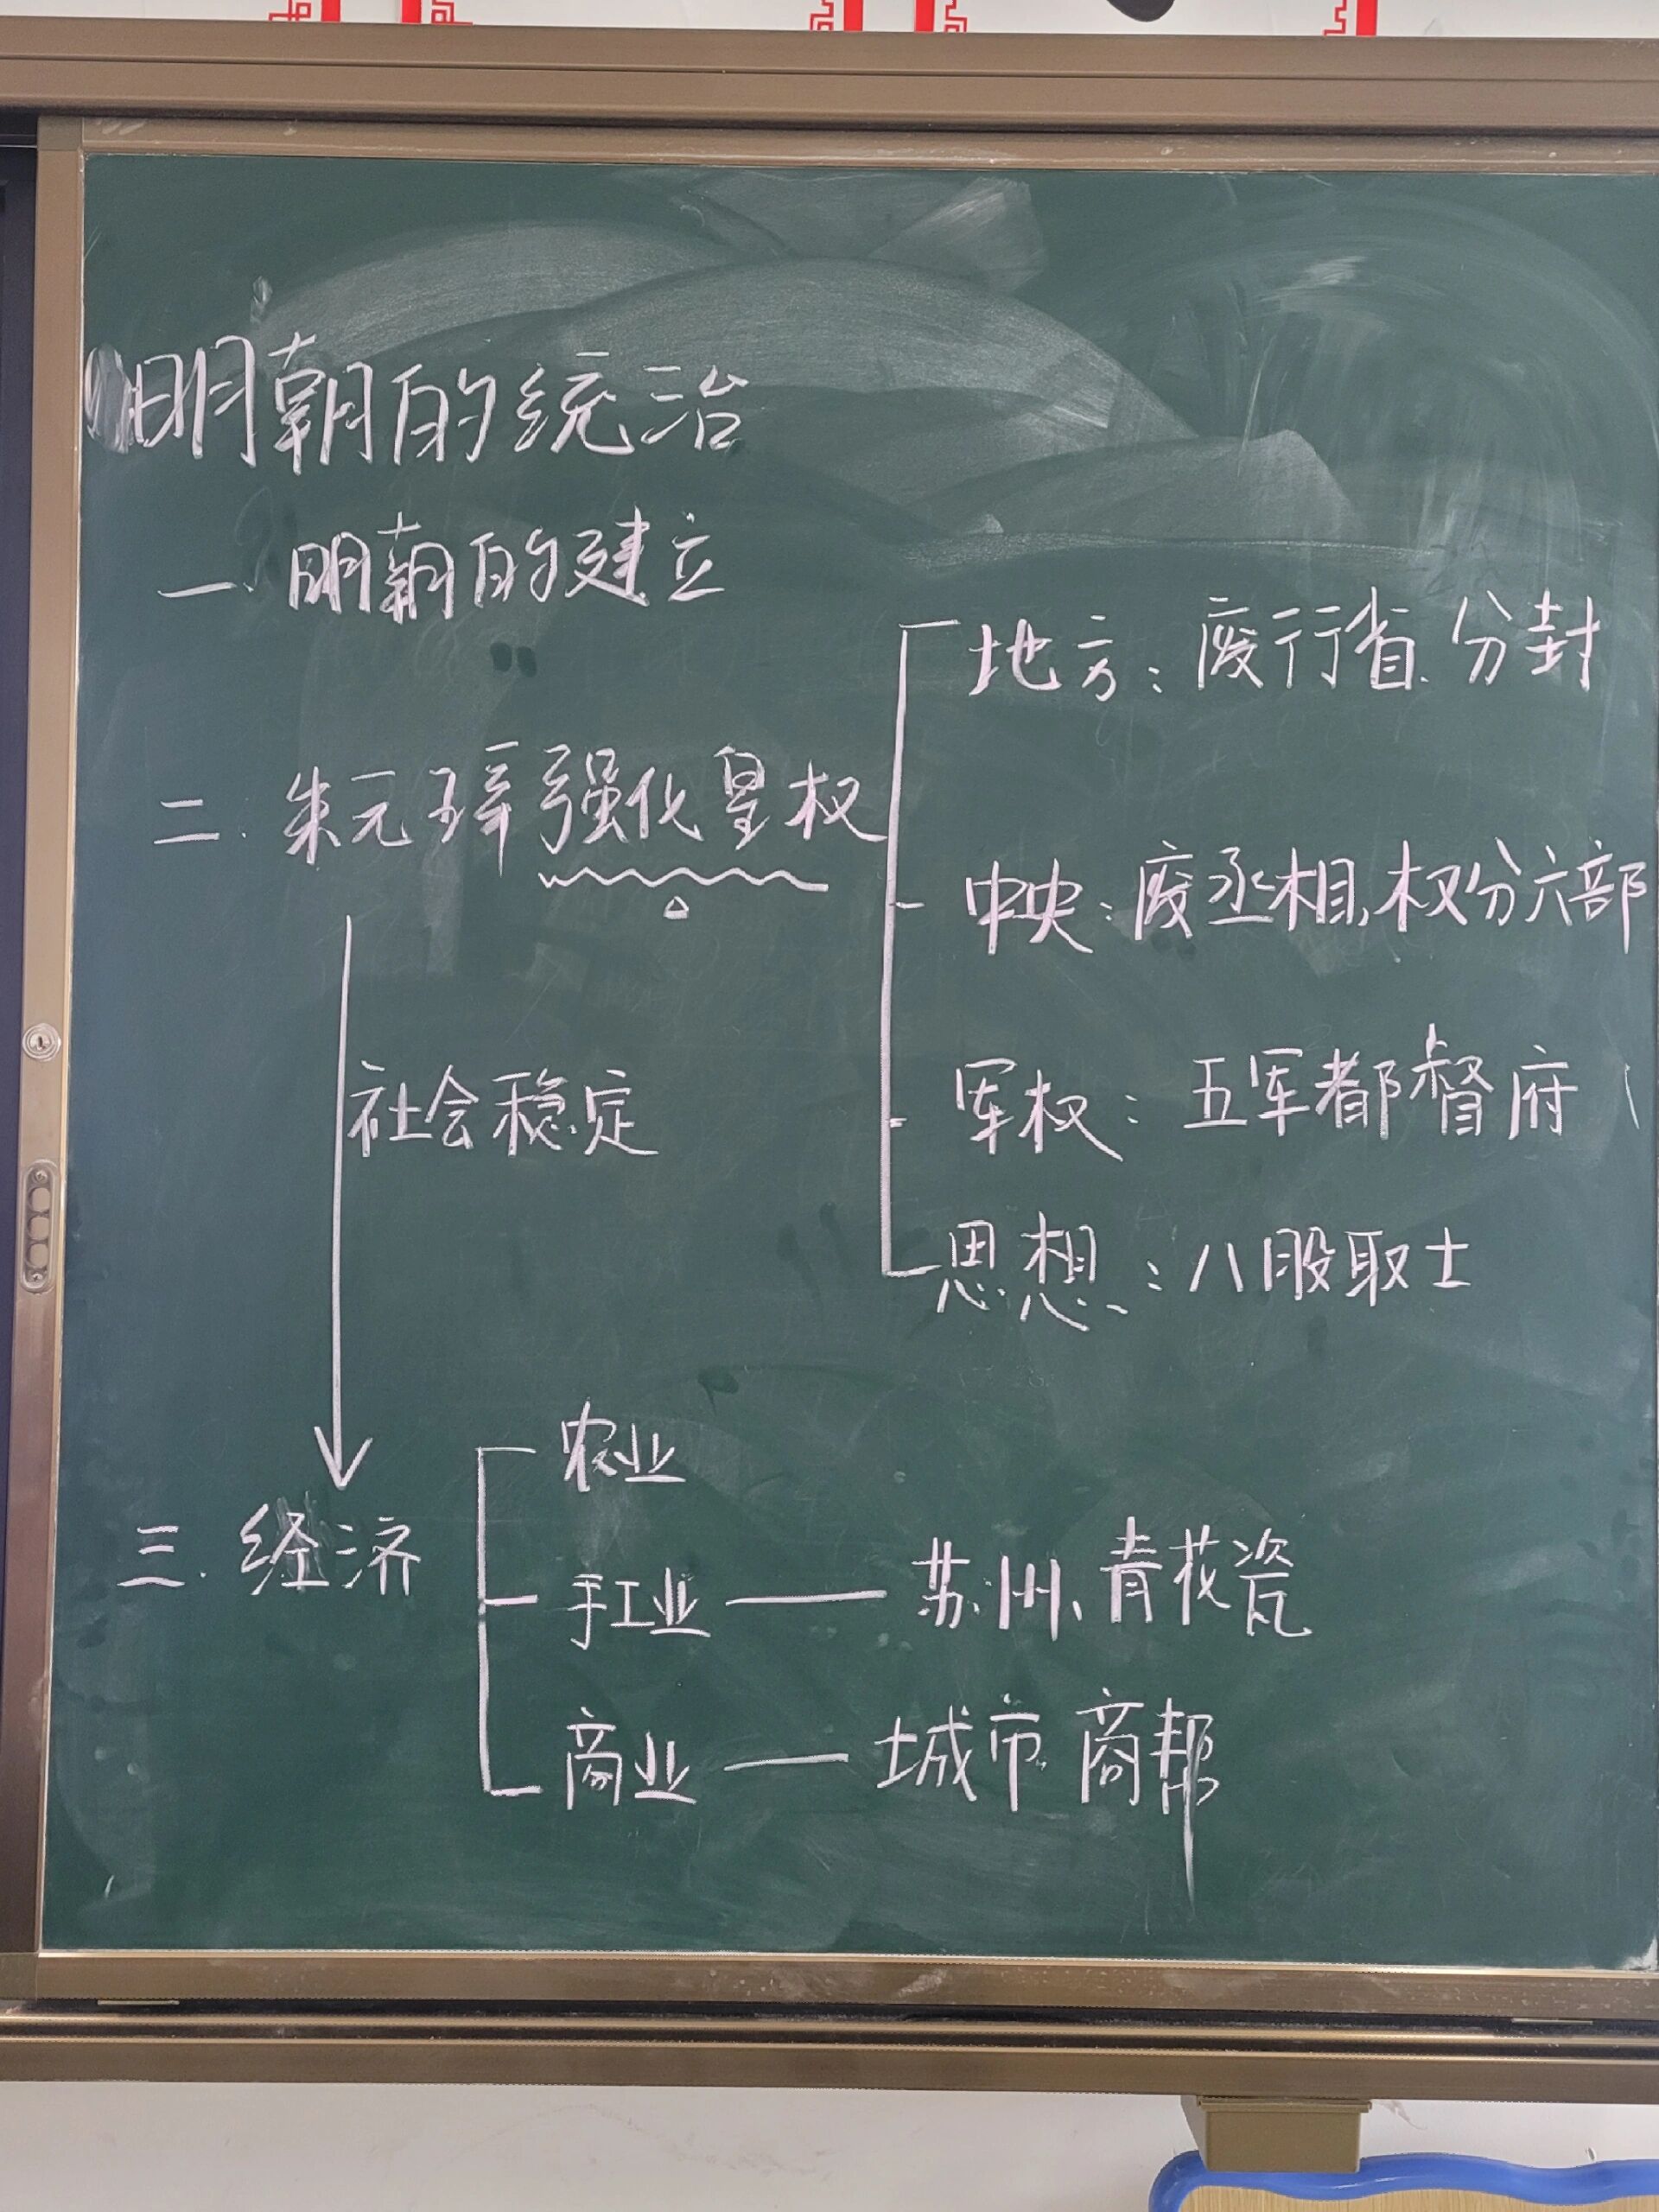 明朝的统治
一. 明朝的建立
二. 朱元璋强化皇权
地方：废行省.分封
中央：废丞相,权分六部
军权：五军都督府
思想：八股取士
社会稳定
三. 经济
农业
手工业——苏州、青花瓷
商业——城市.商帮